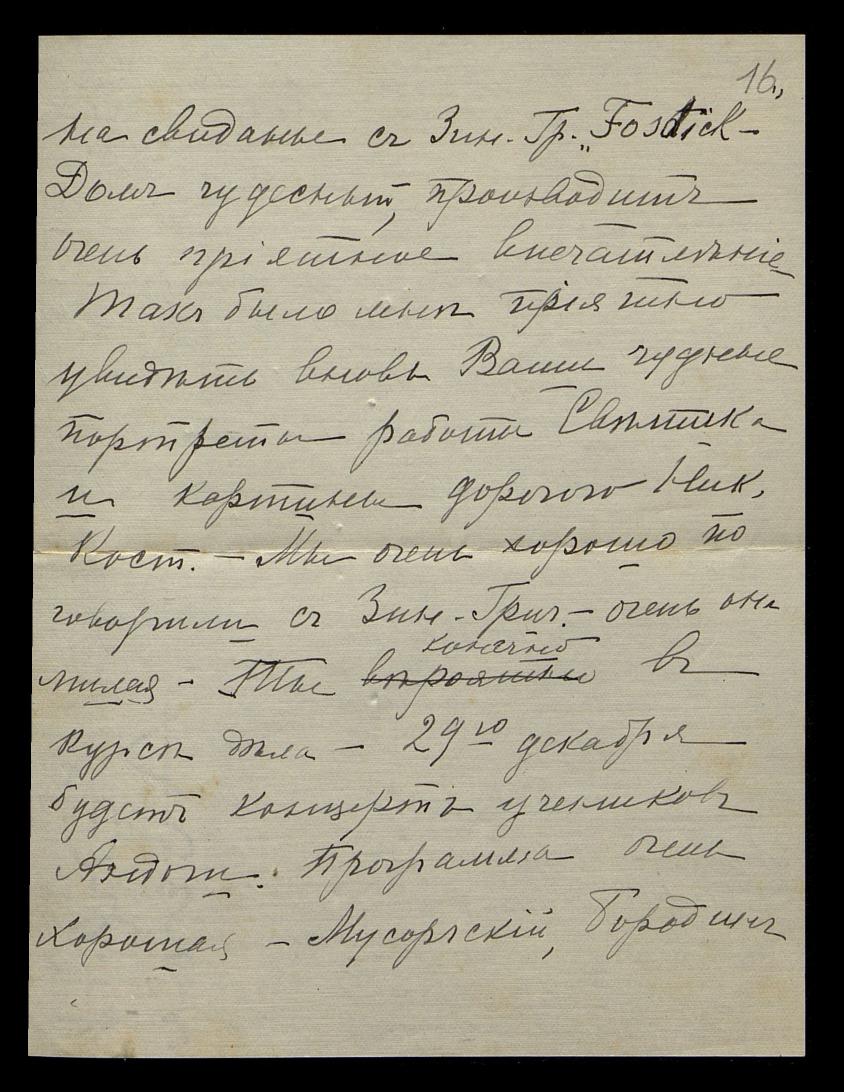 16.,
на свиданье съ Зин. Гр. „Fosdick –
Домъ чудесный, производитъ
очень пріятное впечатлѣніе
Такъ было мнѣ пріятно
увидѣть вновь Ваши чудные
портреты работы Святика
и картины дорогого Ник.
Конст. – Мы очень хорошо по
говорили съ Зин. Григ. – очень она
милая – Ты конечно
вѣроятно въ
курсѣ дѣла – 29го декабря
будетъ концертъ учениковъ
программа очень
хорошая – Мусоргскій, Бородинъ